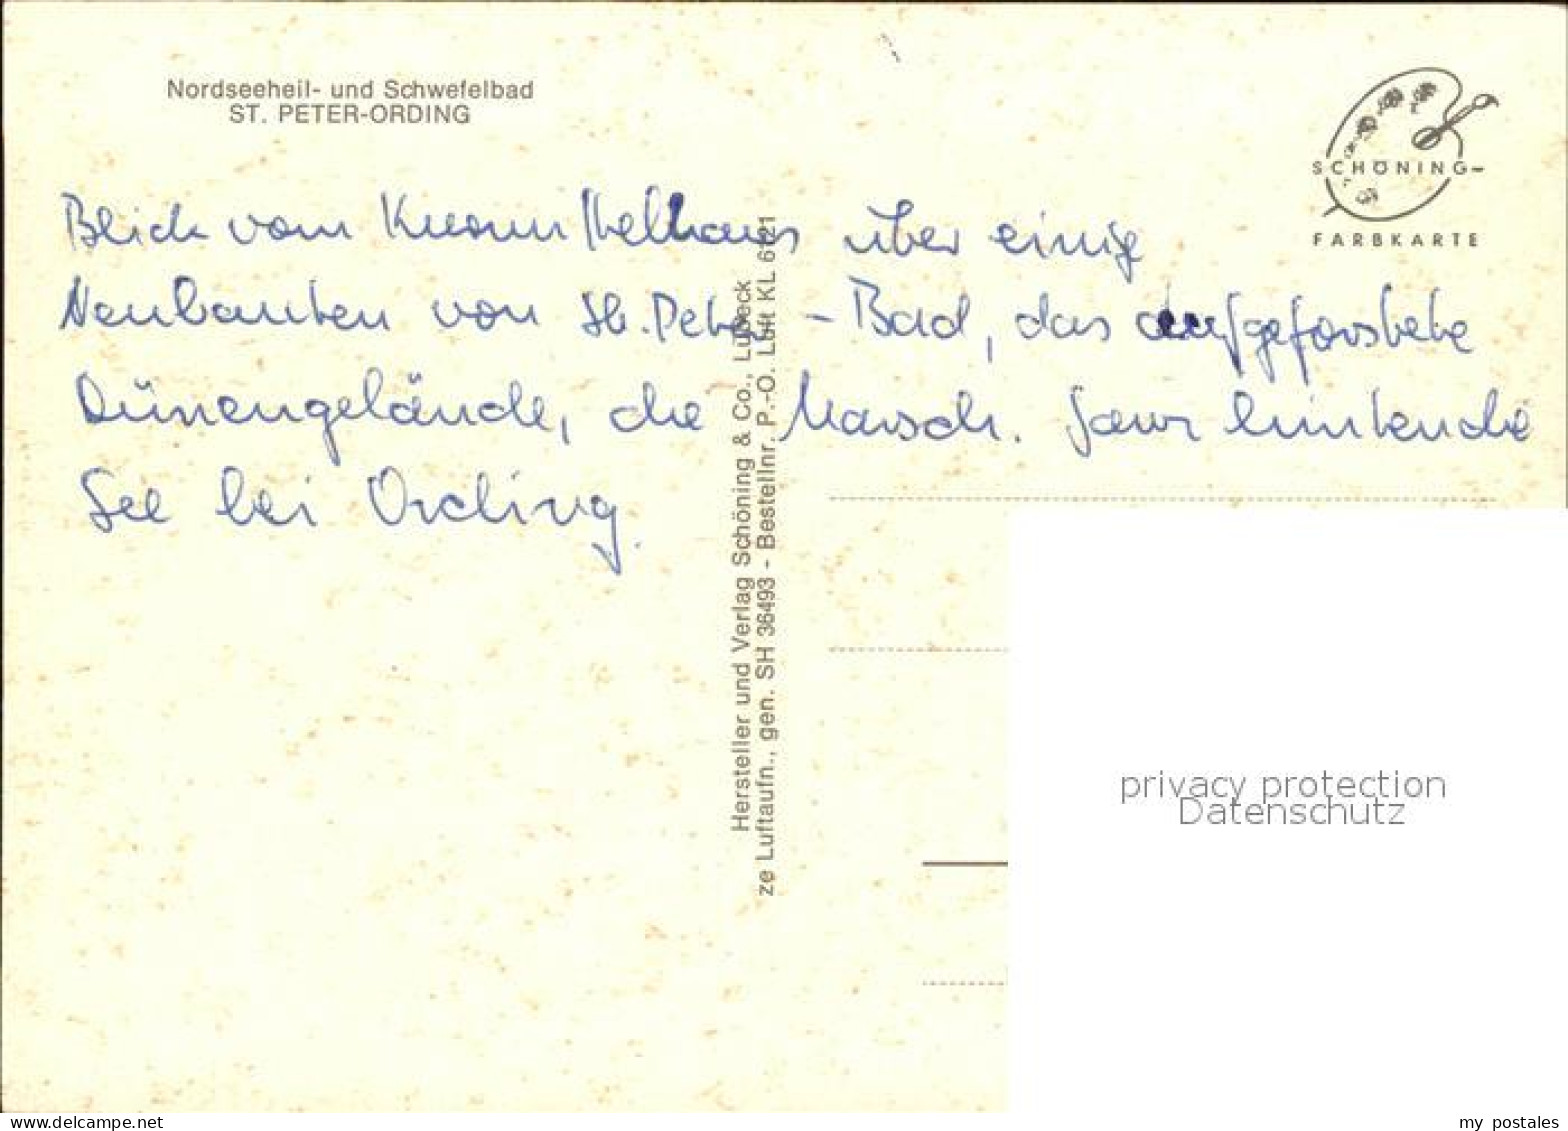 Nordseeheil- und Schwefelbad
ST. PETER-ORDING
SCHÖNING-
FARBKARTE
Blick vom über einige
Neubauten von St. Peter - Bad, das aufgeforstete
Dünengelände, die Marsch. Ganz hinten die
See bei Ording.
Hersteller und Verlag Schöning & Co., Lübeck
ze Luftaufn., gen. SH 36493 - Bestellnr. P.-O. Luft KL 6121
privacy protection
Datenschutz
delcampe.net
my_postales